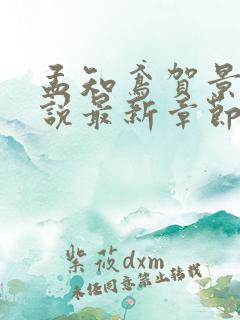 孟知鸢贺景
说最新章节
紫筱dxm
未经同意禁止转载